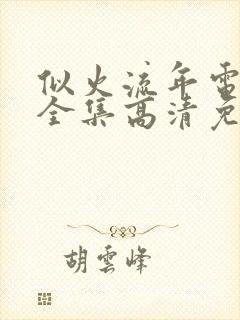 似火流年電
全集高清免
胡雲峰